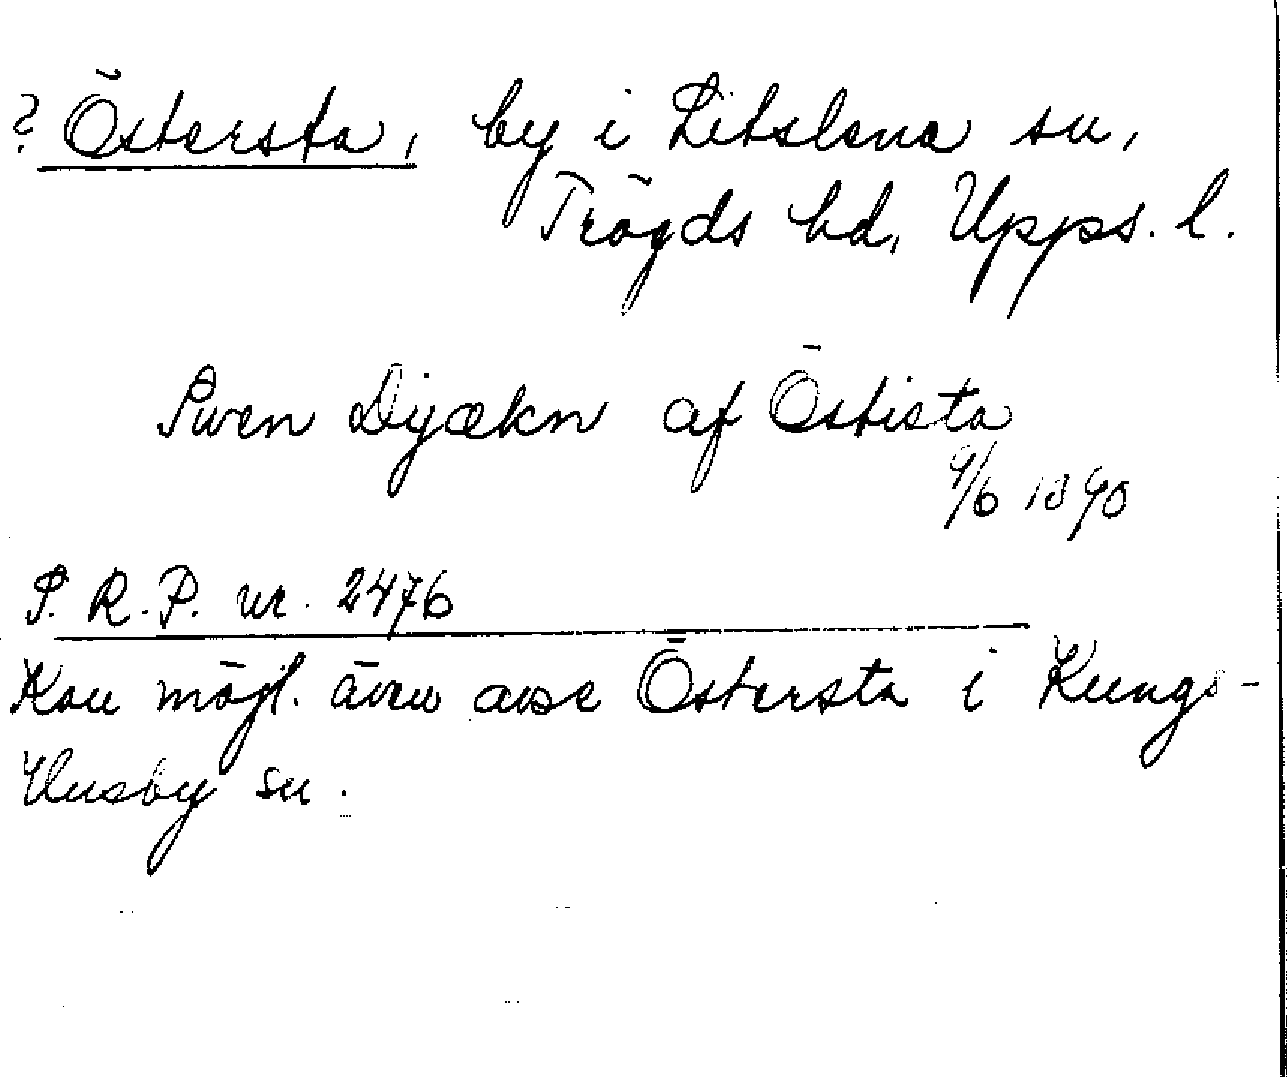 ? Östersta, by i Litslena sn,
Trögds hd, Upps. l.
Swen Dyækn af Östista
9/6 1390
S. R. P. nr. 2476
Kan möjl. även avse Östersta i Kungs-
Husby sn.